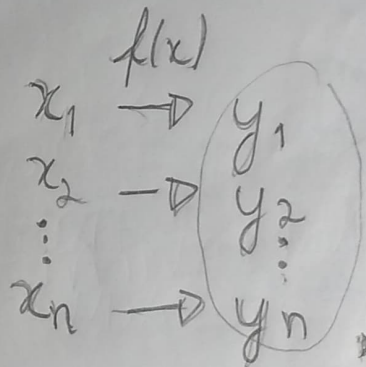 f(x)
x₁ → y₁
x₂ → y₂
⋮ ⋮
xₙ → yₙ